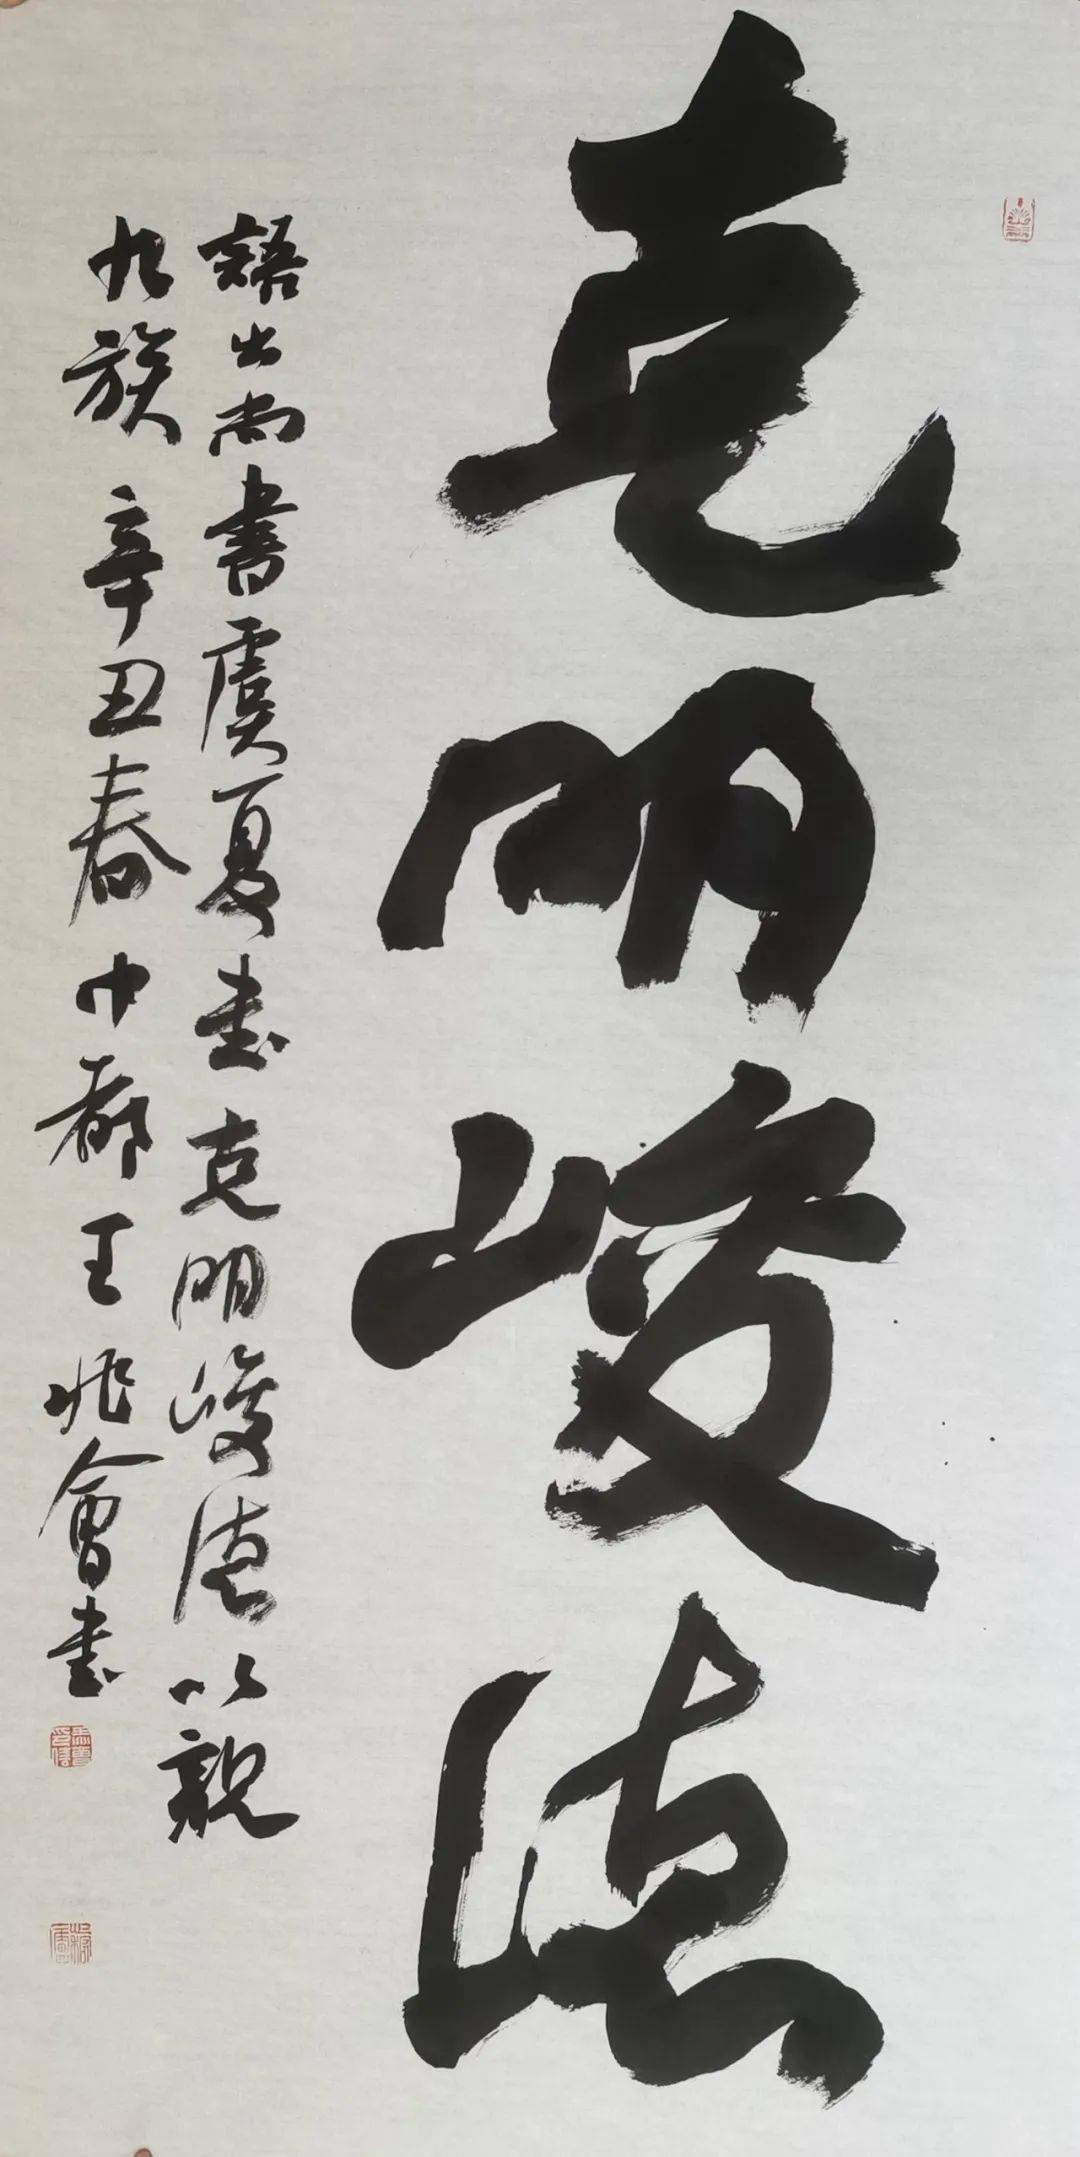 克明峻德
語出尚書虞夏書克明峻德以親
九族 辛丑春中都王兆會書